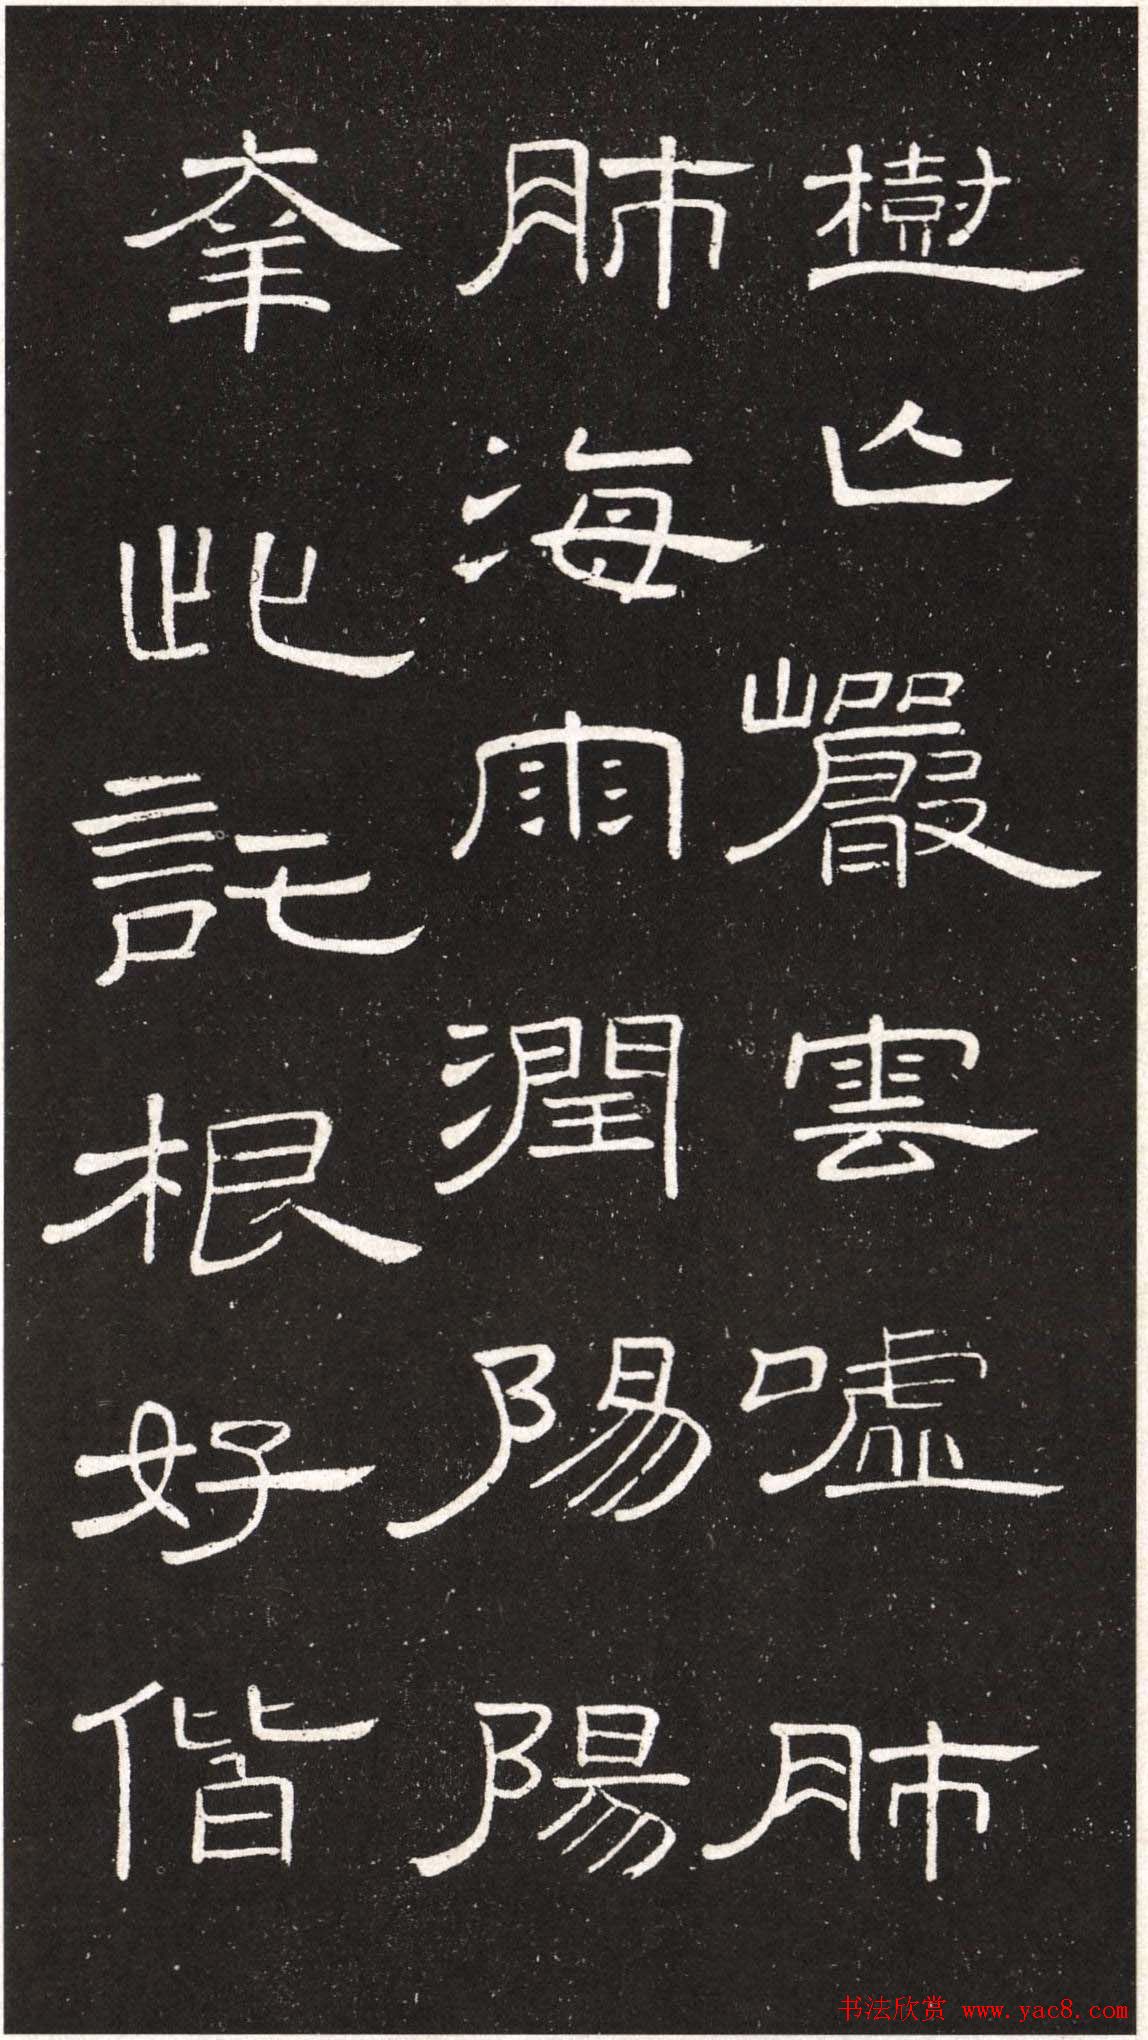 樹亾巖雲嘘肺
肺海雨潤陽陽
幸此託根好偕
书法欣赏 www.yac8.com